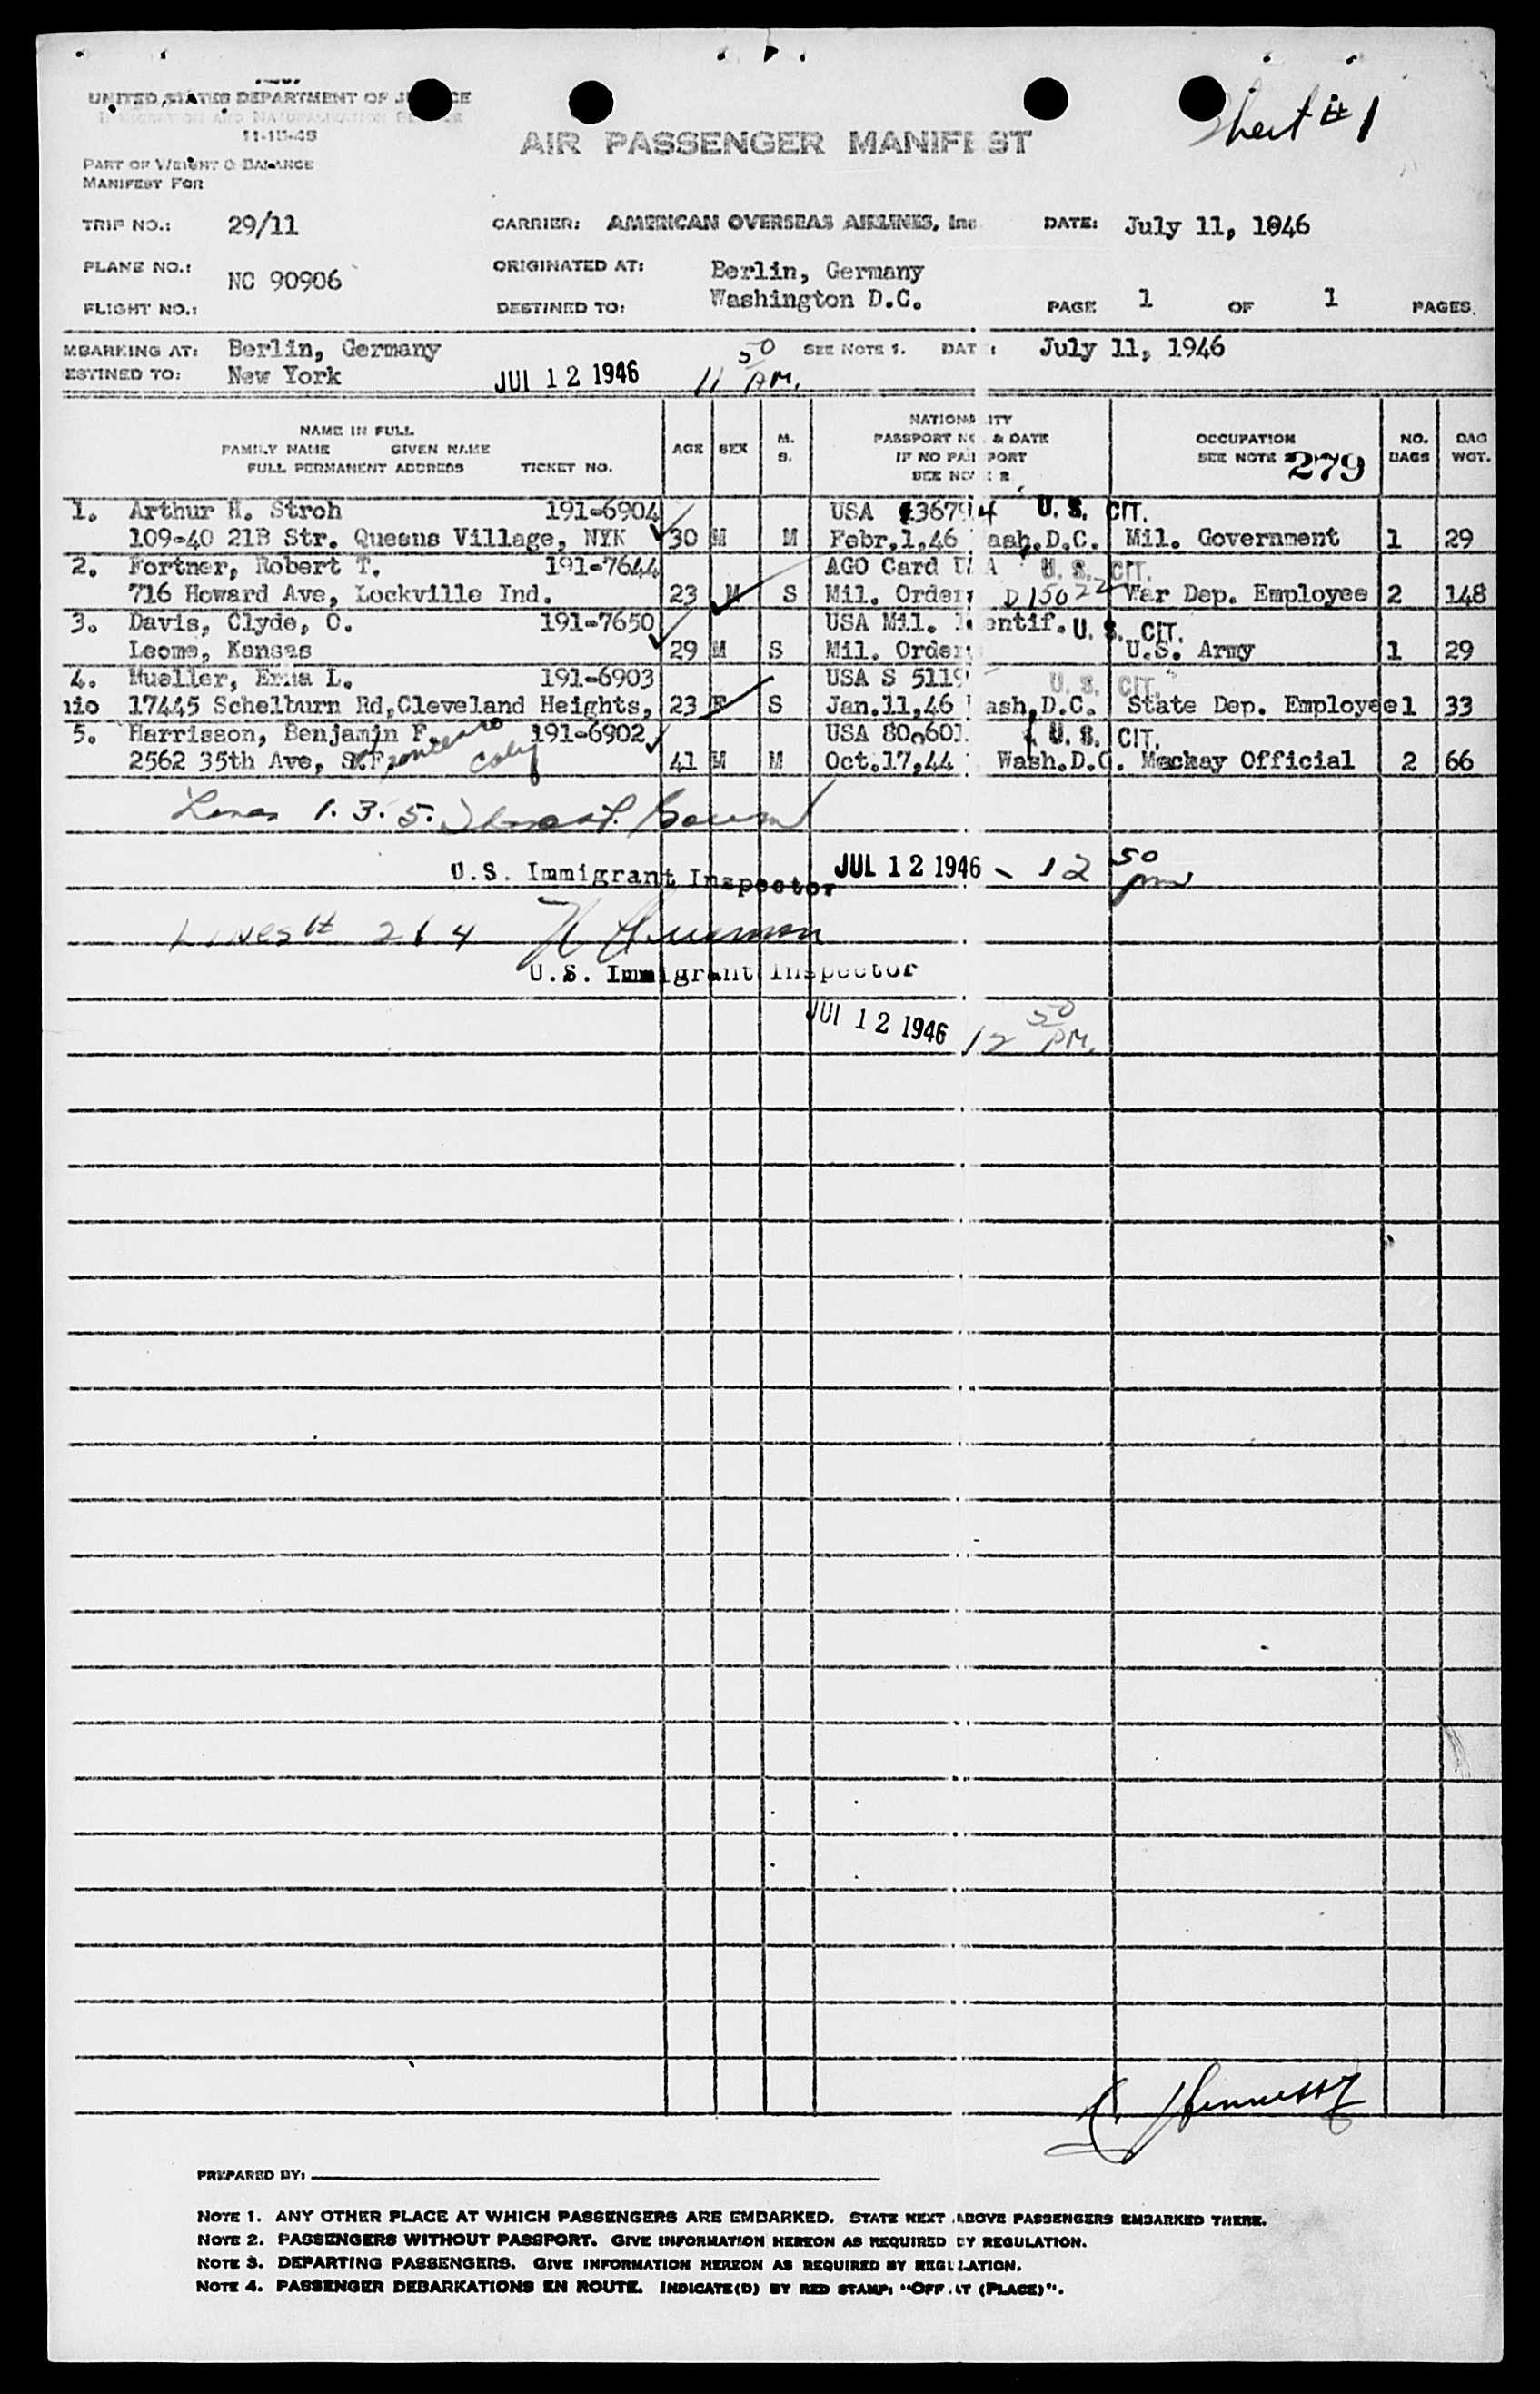 Sheet # 1
UNITED STATES DEPARTMENT OF JUSTICE
IMMIGRATION AND NATURALIZATION SERVICE
11-15-45
AIR PASSENGER MANIFEST
PART OF WEIGHT & BALANCE
MANIFEST FOR
TRIP NO.: 29/11 CARRIER: AMERICAN OVERSEAS AIRLINES, Inc DATE: July 11, 1946
PLANE NO.: NC 90906 ORIGINATED AT: Berlin, Germany
FLIGHT NO.: DESTINED TO: Washington D.C. PAGE 1 OF 1 PAGES.
MBARKING AT: Berlin, Germany SEE NOTE 1. DATE: July 11, 1946
ESTINED TO: New York JUL 12 1946 11 50 AM.
NAME IN FULL
FAMILY NAME GIVEN NAME
FULL PERMANENT ADDRESS TICKET NO. AGE SEX M. S. NATIONALITY PASSPORT NO. & DATE IF NO PASSPORT SEE NOTE 2 OCCUPATION SEE NOTE 279 NO. BAGS BAG WGT.
1. Arthur H. Stroh 191-6904 USA 43679 4 U. S. CIT.
109-40 21B Str. Queens Village, NYK 30 M M Febr.1.46 ash.D.C. Mil. Government 1 29
2. Fortner, Robert T. 191-7644 AGO Card U A U. S. CIT.
716 Howard Ave, Lockville Ind. 23 M S Mil. Order D 15622 War Dep. Employee 2 148
3. Davis, Clyde, O. 191-7650 USA Mil. I entif. U. S. CIT.
Leoms, Kansas 29 M S Mil. Order U.S. Army 1 29
4. Mueller, Erna L. 191-6903 USA S 5119 U. S. CIT.
hio 17445 Schelburn Rd,Cleveland Heights, 23 F S Jan.11,46 ash,D.C. State Dep. Employee 1 33
5. Harrisson, Benjamin F. 191-6902 USA 80,601 U. S. CIT.
2562 35th Ave, S.F. 41 M M Oct.17,44 Wash.D.C. Mackay Official 2 66
Lines 1. 3. 5.
U.S. Immigrant Inspector JUL 12 1946 - 12 50 pm
LINES # 2 & 4
U.S. Immigrant Inspector
JUL 12 1946 12 50 PM.
Hennessy
PREPARED BY:
NOTE 1. ANY OTHER PLACE AT WHICH PASSENGERS ARE EMBARKED. STATE NEXT ABOVE PASSENGERS EMBARKED THERE.
NOTE 2. PASSENGERS WITHOUT PASSPORT. GIVE INFORMATION HEREON AS REQUIRED BY REGULATION.
NOTE 3. DEPARTING PASSENGERS. GIVE INFORMATION HEREON AS REQUIRED BY REGULATION.
NOTE 4. PASSENGER DEBARKATIONS EN ROUTE. INDICATE(D) BY RED STAMP: "OFF AT (PLACE)".